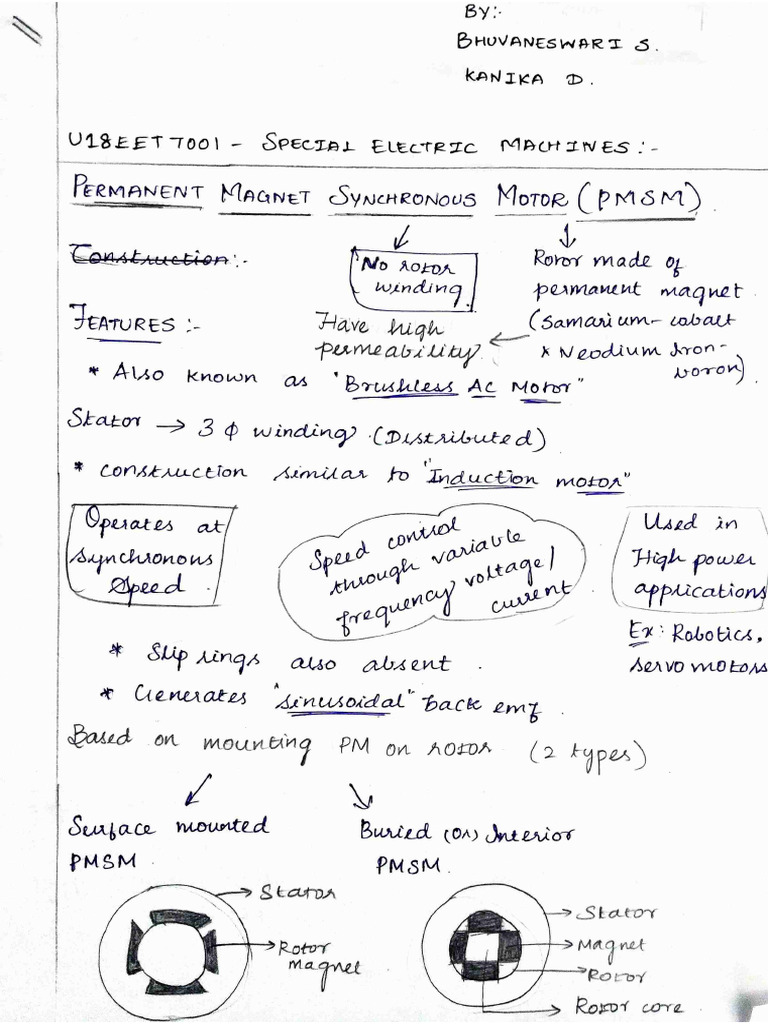 BY:-
BHUVANESWARI S.
KANIKA D.
U18EET7001 - SPECIAL ELECTRIC MACHINES:-
PERMANENT MAGNET SYNCHRONOUS MOTOR (PMSM).
Construction:-
No rotor
winding.
Rotor made of
permanent magnet
(Samarium-cobalt
* Neodium Iron-
boron)
Have high
permeability.
FEATURES:-
* Also known as "Brushless Ac Motor"
Stator → 3 ϕ winding. (Distributed)
* construction similar to "Induction motor"
Operates at
synchronous
speed.
Speed control
through variable
frequency voltage/
current
Used in
High power
applications
Ex: Robotics,
servo motors
* Slip rings also absent.
* Generates "sinusoidal" back emf.
Based on mounting PM on rotor (2 types)
Surface mounted
PMSM.
Buried (or) Interior
PMSM.
Stator
Rotor
magnet
Stator
Magnet
Rotor
Rotor core